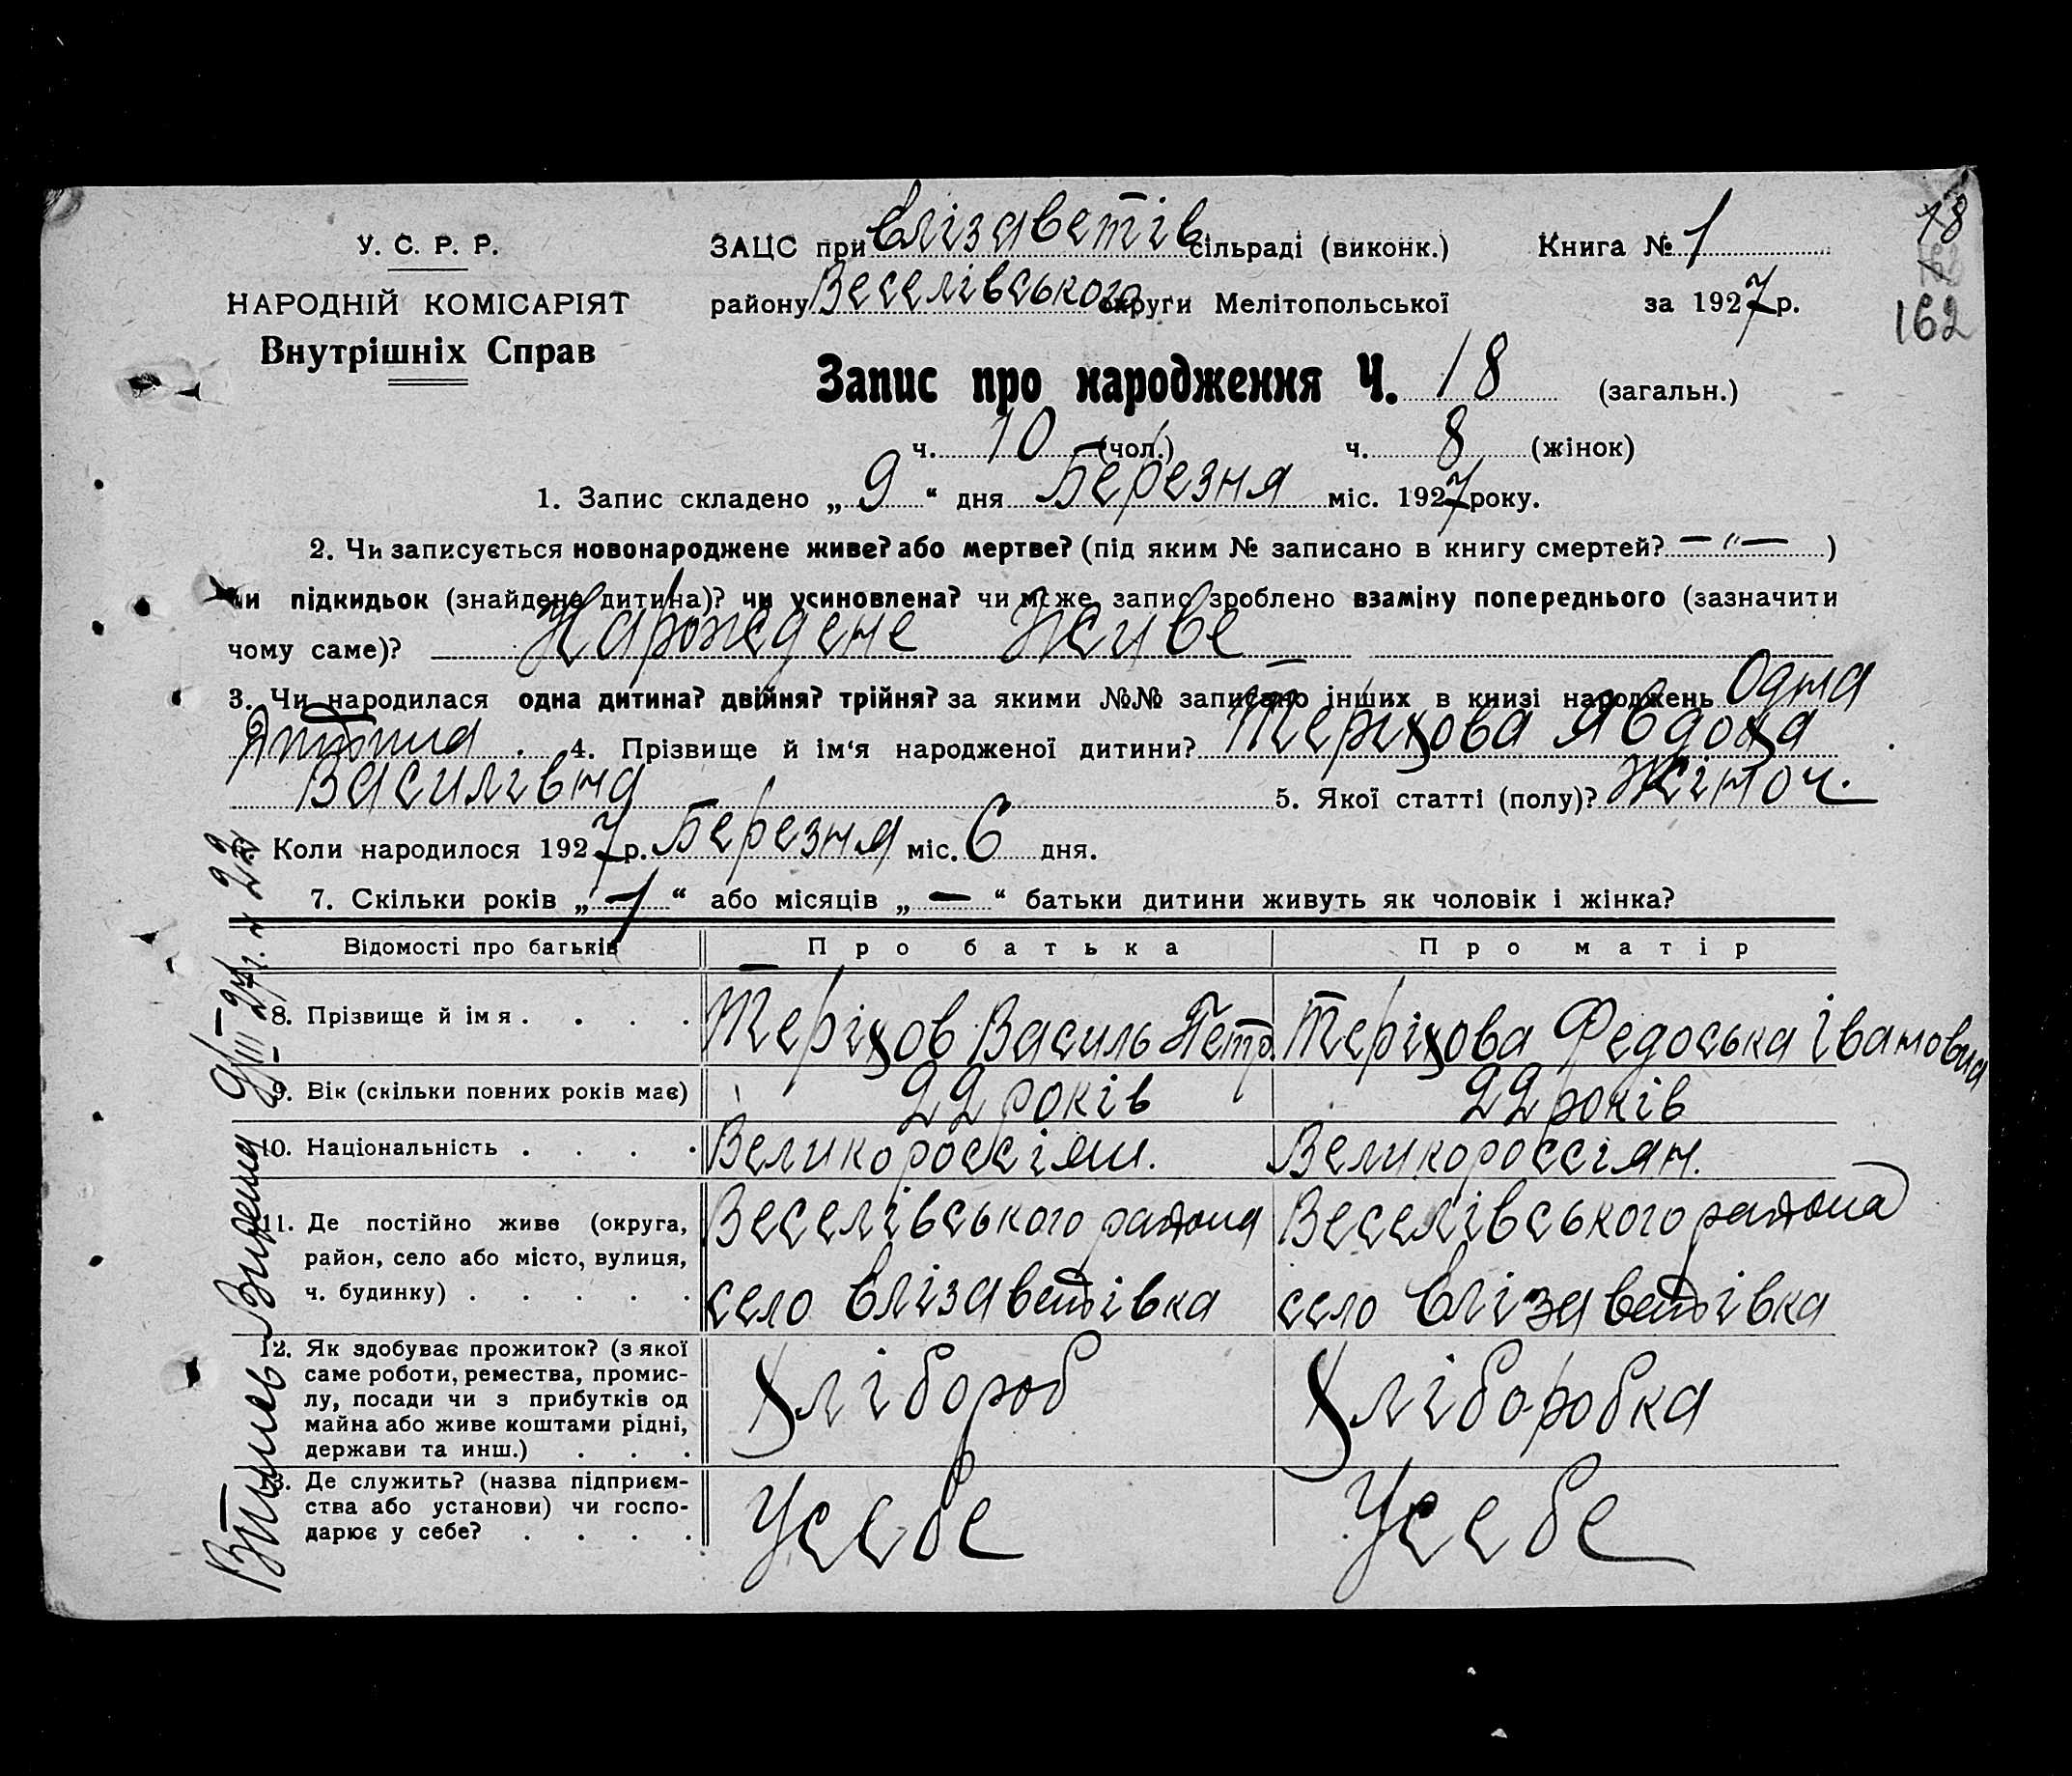 У. С. Р. Р.
НАРОДНІЙ КОМІСАРІЯТ
Внутрішніх Справ
ЗАЦС при Єлізаветів сільраді (виконк.) Книга № 1
району Веселівського округи Мелітопольської за 1927 р.
18
162
Запис про народження Ч. 18 (загальн.)
ч. 10 (чол.) ч. 8 (жінок)
1. Запис складено „ 9 “ дня Березня міс. 1927 року.
2. Чи записується новонароджене живе? або мертве? (під яким № записано в книгу смертей? — " — )
чи підкидьок (знайдена дитина)? чи усиновлена? чи може запис зроблено взаміну попереднього (зазначити
чому саме)? Нарождене Живе
3. Чи народилася одна дитина? двійня? трійня? за якими №№ записано інших в книзі народжень Одна
дитина . 4. Прізвище й ім‘я народженої дитини? Теріхова Явдоха
Василівна 5. Якої статті (полу)? Жіноч.
Коли народилося 1927 р. Березня міс. 6 дня.
7. Скільки років „ 1 “ або місяців „ — “ батьки дитини живуть як чоловік і жінка?
Відомості про батьків Про батька Про матір
8. Прізвище й імя . . . . Теріхов Василь Петр Теріхова Федоська Івановна
9. Вік (скільки повних років має) 22 років 22 років
10. Національність . . . . Великороссіян. Великороссіян.
11. Де постійно живе (округа, Веселівського района Веселівського района
район, село або місто, вулиця,
ч. будинку) . . . . . село Єлізаветівка село Єлізаветівка
12. Як здобуває прожиток? (з якої
саме роботи, ремества, промис-
лу, посади чи з прибутків од Хлібороб Хліборобка
майна або живе коштами рідні,
держави та инш.) . . .
13. Де служить? (назва підприєм-
ства або установи) чи госпо- Усебе Усебе
дарює у себе? . . . .
9/III 27 г. № 22